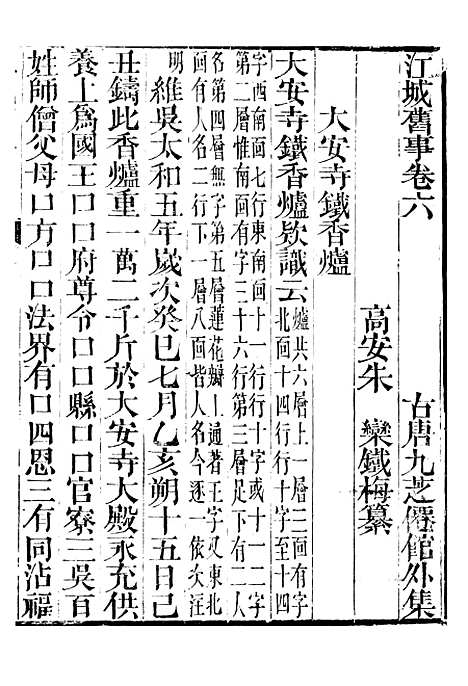 江城舊事卷六　古唐九芝僊館外集
高安朱　欒鐵梅纂
大安寺鐵香爐
大安寺鐵香爐欵識云爐共六層上一層三四
北面十四字至十四
字西南面七行東南面十一行行十字或十一二字
第二層惟南面有字三十六行第三層足下有二人
名第四層無字第五層蓮花瓣上通著王字又東北
面有人名二行下一層八面皆人名今逐一依次注
明
維吳太和五年歲次癸巳七月乙亥朔十五日己
丑鑄此香爐重一萬二千斤於大安寺大殿永充供
養上爲國王口口府尊令口口縣口口官寮三吳百
姓師僧父母口方口口法界有口四恩三有同沾福